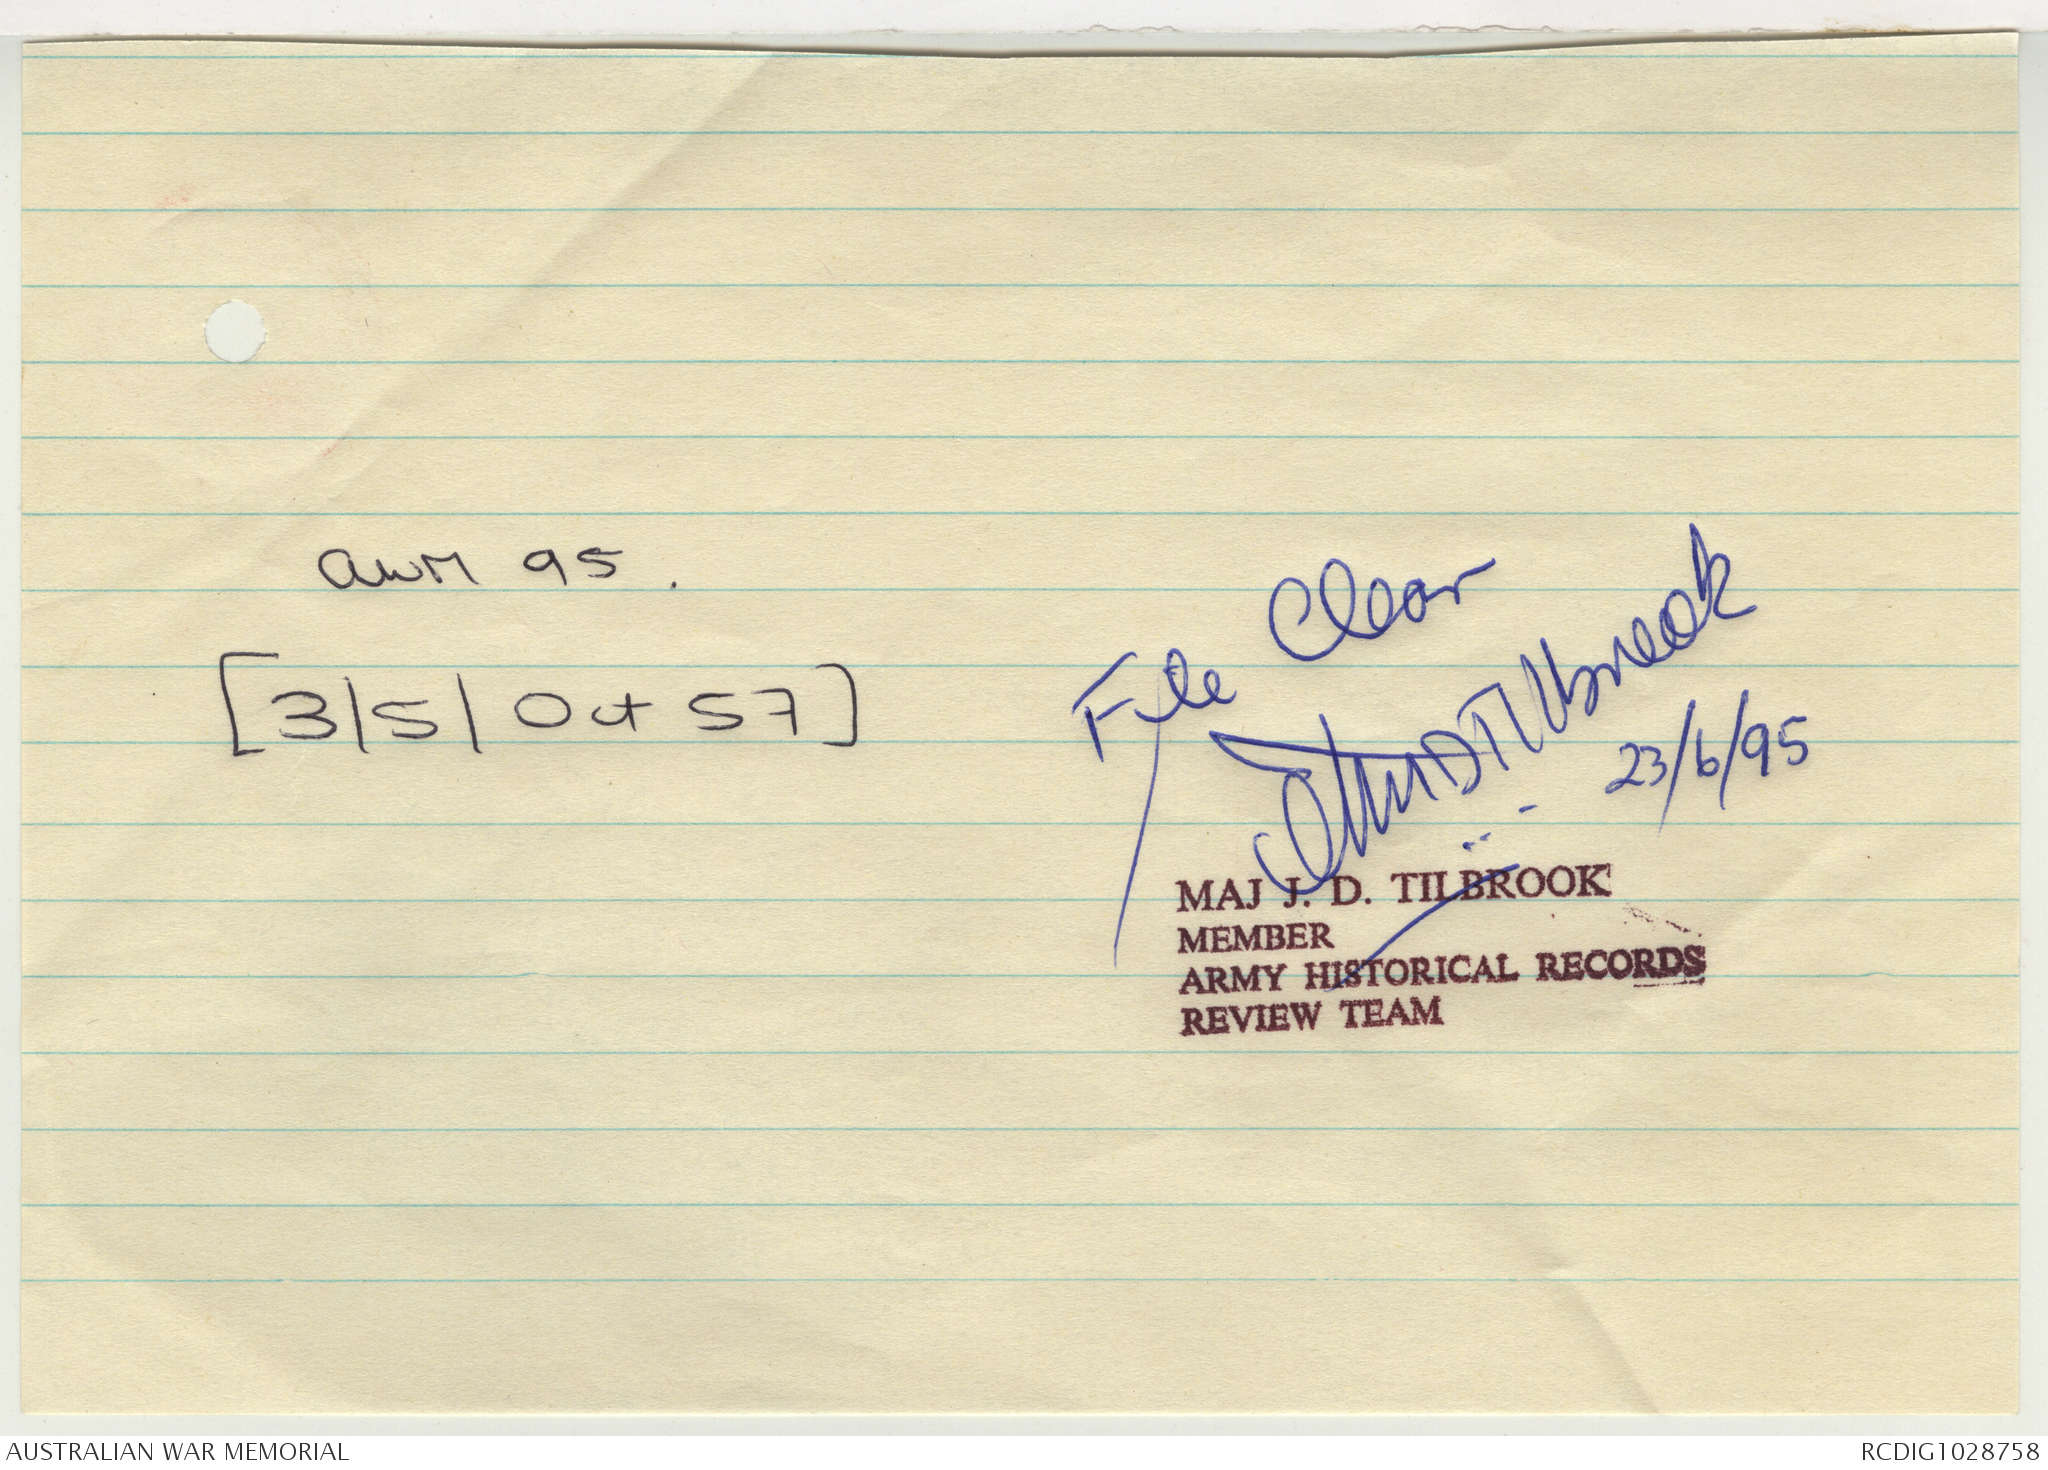 AWM 95.
[3/5/Oct 57]
File Clear
JD Tilbrook
23/6/95
MAJ J. D. TILBROOK
MEMBER
ARMY HISTORICAL RECORDS
REVIEW TEAM
AUSTRALIAN WAR MEMORIAL
RCDIG1028758